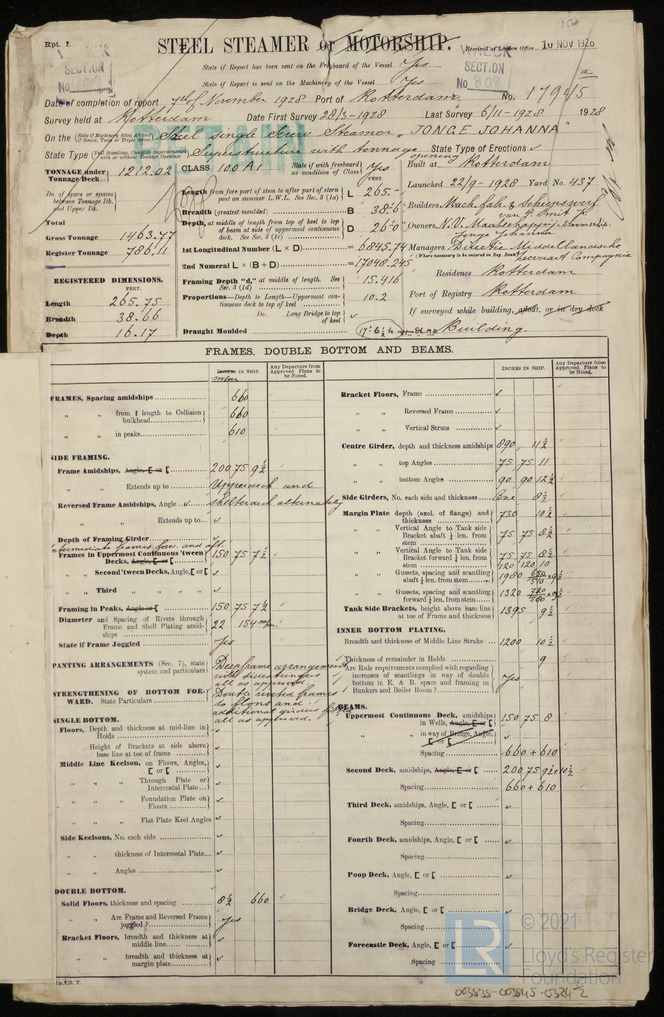 Rpt. 1.
STEEL STEAMER or MOTORSHIP.
Received at London Office 10 NOV 1928
SECTION
No.
SECTION
No.
State if Report has been sent on the Freeboard of the Vessel Yes
State if Report is sent on the Machinery of the Vessel Yes
Date of completion of report 7th of November 1928 Port of Rotterdam No. 17945
Survey held at Rotterdam Date First Survey 28/3-1928 Last Survey 6/11-1928 1928
On the Steel single Screw Steamer "JONGE JOHANNA"
State Type Superstructure with tonnage opening State Type of Erections ✓
TONNAGE under Tonnage Deck 1212.02
CLASS 100 A1 State if with freeboard as condition of Class Yes
Built at Rotterdam
Launched 22/9-1928 Yard No. 437
Do. of space or spaces between Tonnage Dk. and Upper Dk.
Total
Gross Tonnage 1463.77
Register Tonnage 786.11
REGISTERED DIMENSIONS.
Length 265.75
Breadth 38.66
Depth 16.17
FEET.
Length from fore part of stem to after part of stern post on summer L.W.L. See Sec. 3 (1a) L 265.-
Breadth (greatest moulded) B 38.6
Depth, at middle of length from top of keel to top of beam at side of uppermost continuous deck. See Sec. 3 (1c) D 26.0
1st Longitudinal Number (L × D) = 6845.74
2nd Numeral L × (B + D) = 17048.245
Framing Depth "d," at middle of length. See Sec. 3 (1d) 15.416
Proportions—Depth to Length—Uppermost continuous deck to top of keel 10.2
Do. Long Bridge to top of keel ✓
Draught Moulded 17'-6½
Builders Mach. fab. & Scheepswerf van P. Smit Jr.
Owners N.V. Maatschappij Stoomschip Jonge Johanna
Managers Directie Middellandsche
(Where necessary to be entered in Reg. Book)
Compagnie
Residence Rotterdam
Port of Registry Rotterdam
If surveyed while building, afloat, or in dry dock
Building.
FRAMES, DOUBLE BOTTOM AND BEAMS.
INCHES IN SHIP.
Any Departure from Approved Plans to be Noted.
INCHES IN SHIP.
Any Departure from Approved Plans to be Noted.
FRAMES, Spacing amidships 660
" " from ⅕ length to Collision bulkhead 660
" " in peaks 610
SIDE FRAMING.
Frame Amidships, Angle, [ or [ 200 75 9½
" " Extends up to Upperdeck and shelterdeck alternately
Reversed Frame Amidships, Angle ✓
" " Extends up to ✓
Depth of Framing Girder
Intermediate frames fore and aft
Frames in Uppermost Continuous 'tween Decks, Angle, [ or [ 150 75 7½
" Second 'tween Decks, Angle, [ or [ ✓
" Third " " " ✓
Framing in Peaks, Angle or [ 150 75 7½
Diameter and Spacing of Rivets through Frame and Shell Plating amidships 22 154 m/m
State if Frame Joggled Yes
PANTING ARRANGEMENTS (Sec. 7), state system and particulars Deepframe arrangement with sidestringers all as approved.
STRENGTHENING OF BOTTOM FORWARD. State Particulars Double riveted frames to floors and additional girders fitted all as approved.
SINGLE BOTTOM.
Floors, Depth and thickness at mid-line in Holds ✓
Height of Brackets at side above base line at toe of frame ✓
Middle Line Keelson, on Floors, Angles, [ or [ ✓
" " " Through Plate or Intercostal Plate ✓
" " " Foundation Plate on Floors ✓
" " " Flat Plate Keel Angles ✓
Side Keelsons, No. each side ✓
" " thickness of Intercostal Plate ✓
" " Angles ✓
DOUBLE BOTTOM.
Solid Floors, thickness and spacing 8½ 660
" " Are Frame and Reversed Frame joggled? Yes
Bracket Floors, breadth and thickness at middle line ✓
" " breadth and thickness at margin plate ✓
Bracket Floors, Frame ✓
" " Reversed Frame ✓
" " Vertical Struts ✓
Centre Girder, depth and thickness amidships 890 11½
" " top Angles 75 75 11
" " bottom Angles 90 90 12½
Side Girders, No. each side and thickness One 8½
Margin Plate depth (excl. of flange) and thickness 730 10½
" " Vertical Angle to Tank side Bracket abaft ¼ len. from stem 75 75 8½
" " Vertical Angle to Tank side Bracket forward ¼ len. from stem 75 75 8½
120 120 10
" " Gussets, spacing and scantling abaft ¼ len. from stem 1980 650/510 × 9½
" " Gussets, spacing and scantling forward ¼ len. from stem 1320 720/560 × 9½
Tank Side Brackets, height above base line at toe of Frame and thickness 1395 9½
INNER BOTTOM PLATING.
Breadth and thickness of Middle Line Strake 1200 10½
Thickness of remainder in Holds 9
Are Rule requirements complied with regarding increases of scantlings in way of double bottom in E. & B. space and framing in Bunkers and Boiler Room? Yes
BEAMS.
Uppermost Continuous Deck, amidships in Wells, Angle, [ or [ 150 75 8
" " in way of Bridge, Angle, [ or [
Spacing 660 + 610
Second Deck, amidships, Angle, [ or [ 200 75 9½ + 10½
Spacing 660 + 610
Third Deck, amidships, Angle, [ or [ ✓
Spacing
Fourth Deck, amidships, Angle, [ or [ ✓
Spacing
Poop Deck, Angle, [ or [ ✓
Spacing
Bridge Deck, Angle, [ or [ ✓
Spacing
Forecastle Deck, Angle, [ or [ ✓
Spacing
© 2021
LR
Lloyd's Register
Foundation
003535-003545-0324 2